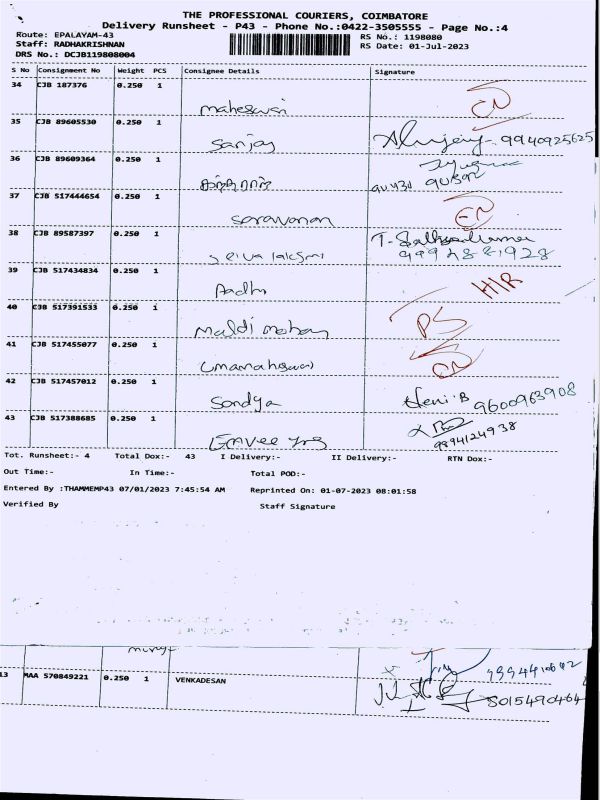 THE PROFESSIONAL COURIERS, COIMBATORE
Delivery Runsheet - P43 - Phone No.:0422-3505555 - Page No.:4
Route: EPALAYAM-43 RS No.: 1198080
Staff: RADHAKRISHNAN RS Date: 01-Jul-2023
DRS No.: DCJB119808004
S No Consignment No Weight PCS Consignee Details Signature
34 CJB 187376 0.250 1
maheswari
35 CJB 89605530 0.250 1
Sanjay 9940925625
36 CJB 89609364 0.250 1
37 CJB 517444654 0.250 1
Saravanan
38 CJB 89587397 0.250 1 T. Sathyakumar
Selva laksmi
39 CJB 517434834 0.250 1
Aadhi
40 CJB 517391533 0.250 1 PS
Maldi mohan
41 CJB 517455077 0.250 1
Umamaheswari
42 CJB 517457012 0.250 1
Sandya Heni.B 9600963908
43 CJB 517388685 0.250 1
Envee 9994124938
Tot. Runsheet:- 4 Total Dox:- 43 I Delivery:- II Delivery:- RTN Dox:-
Out Time:- In Time:- Total POD:-
Entered By :THAMMEMP43 07/01/2023 7:45:54 AM Reprinted On: 01-07-2023 08:01:58
Verified By Staff Signature
13 MAA 570849221 0.250 1 VENKADESAN
8015490464